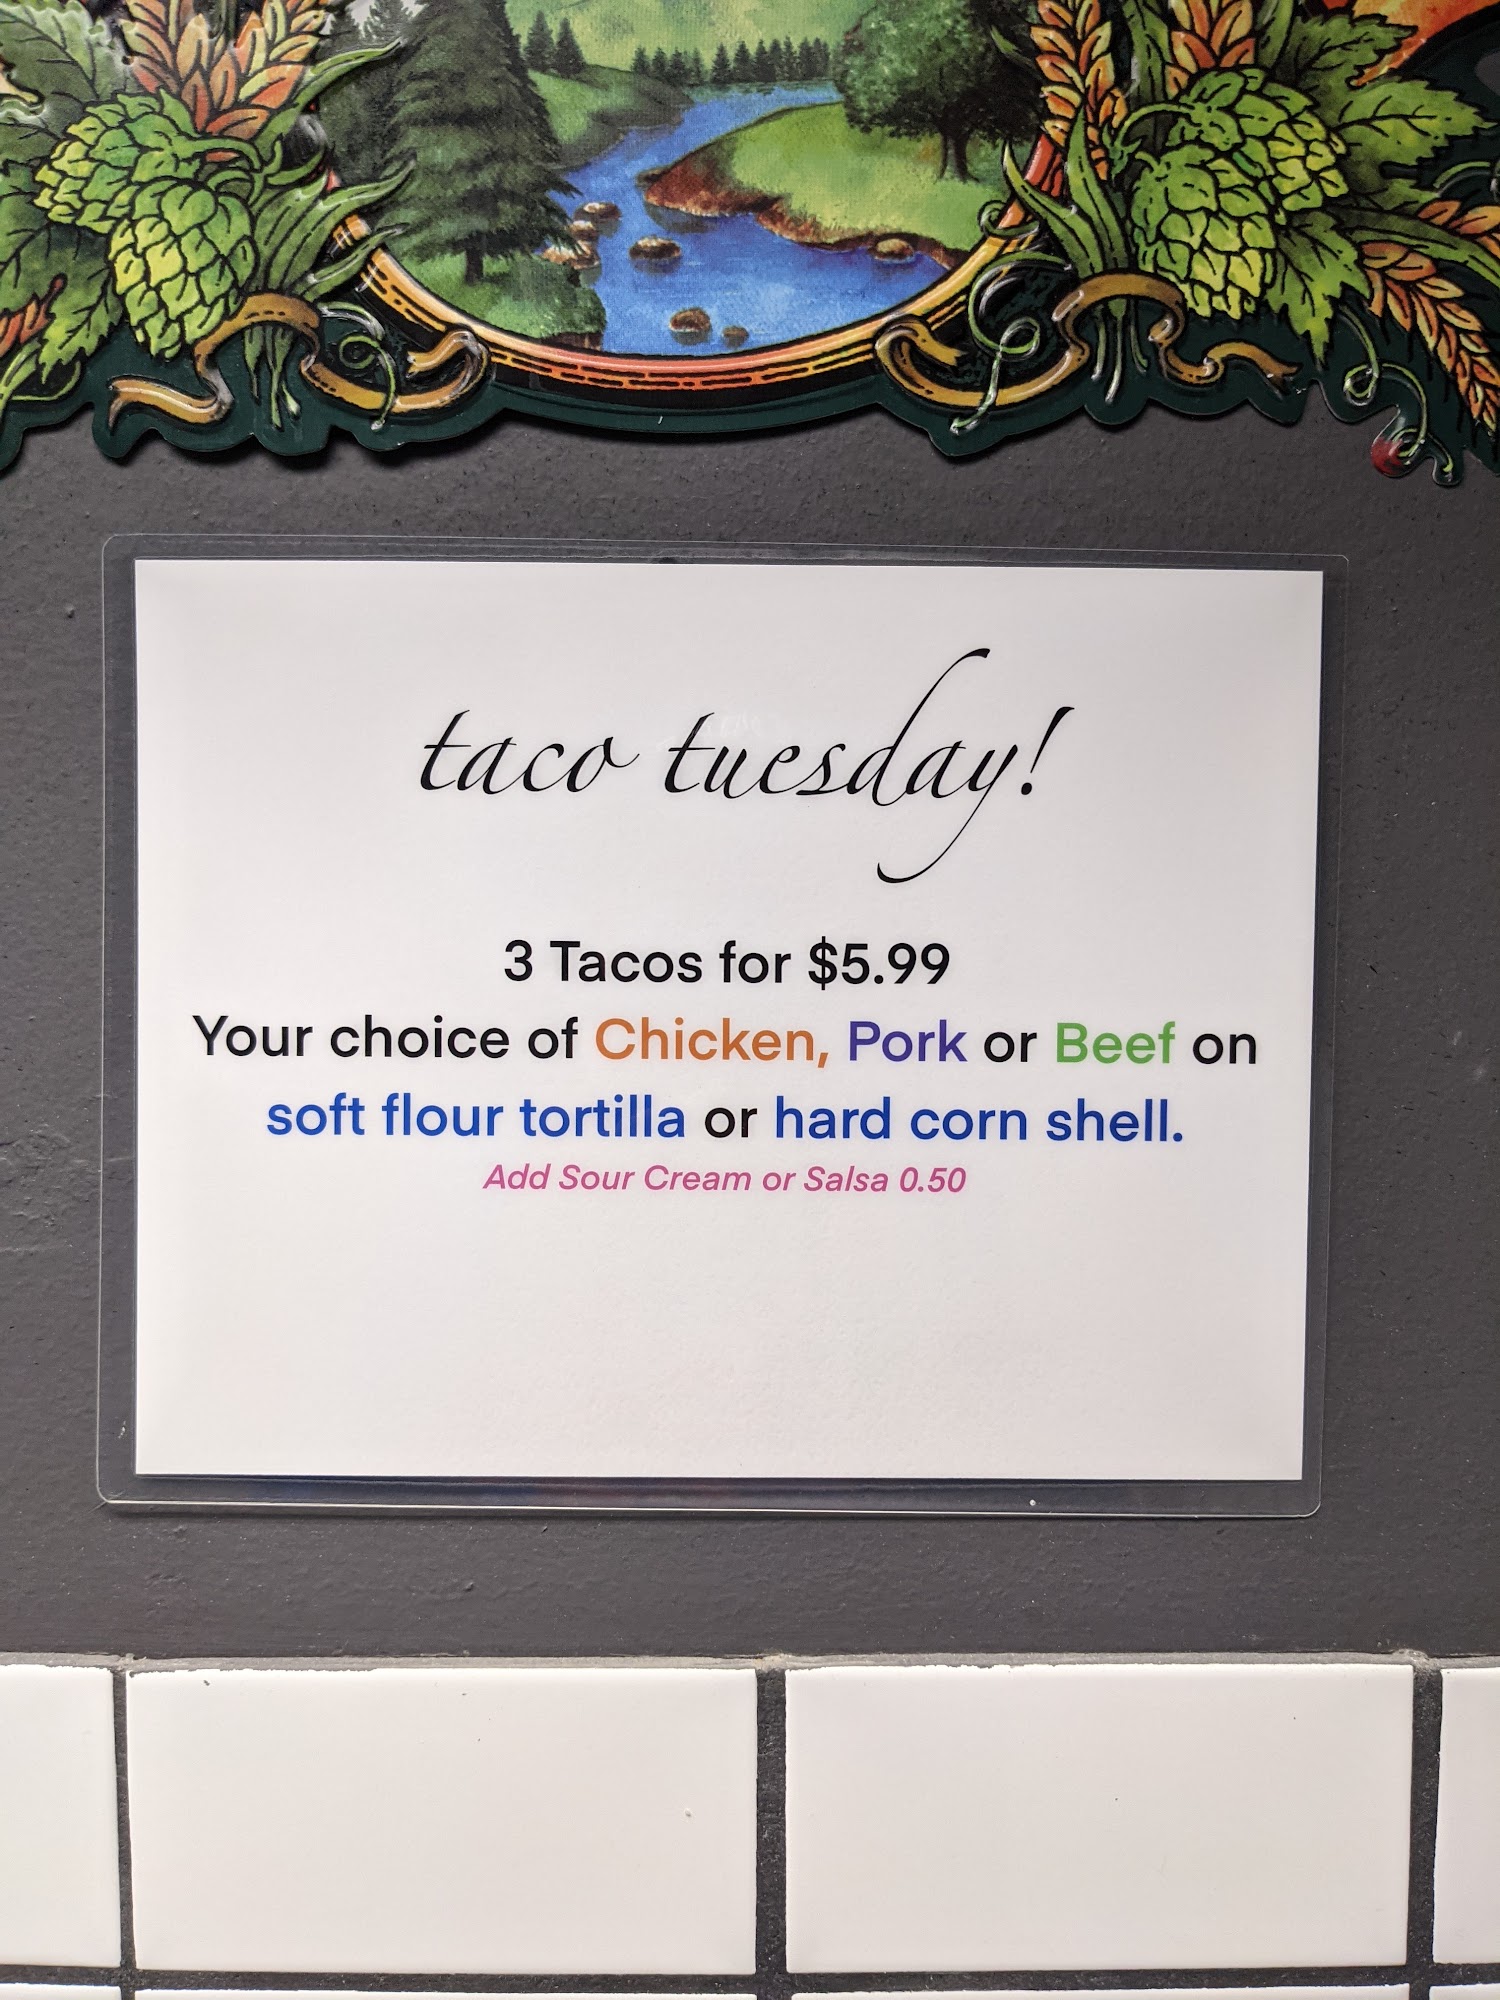 taco tuesday!
3 Tacos for $5.99
Your choice of Chicken, Pork or Beef on
soft flour tortilla or hard corn shell.
Add Sour Cream or Salsa 0.50